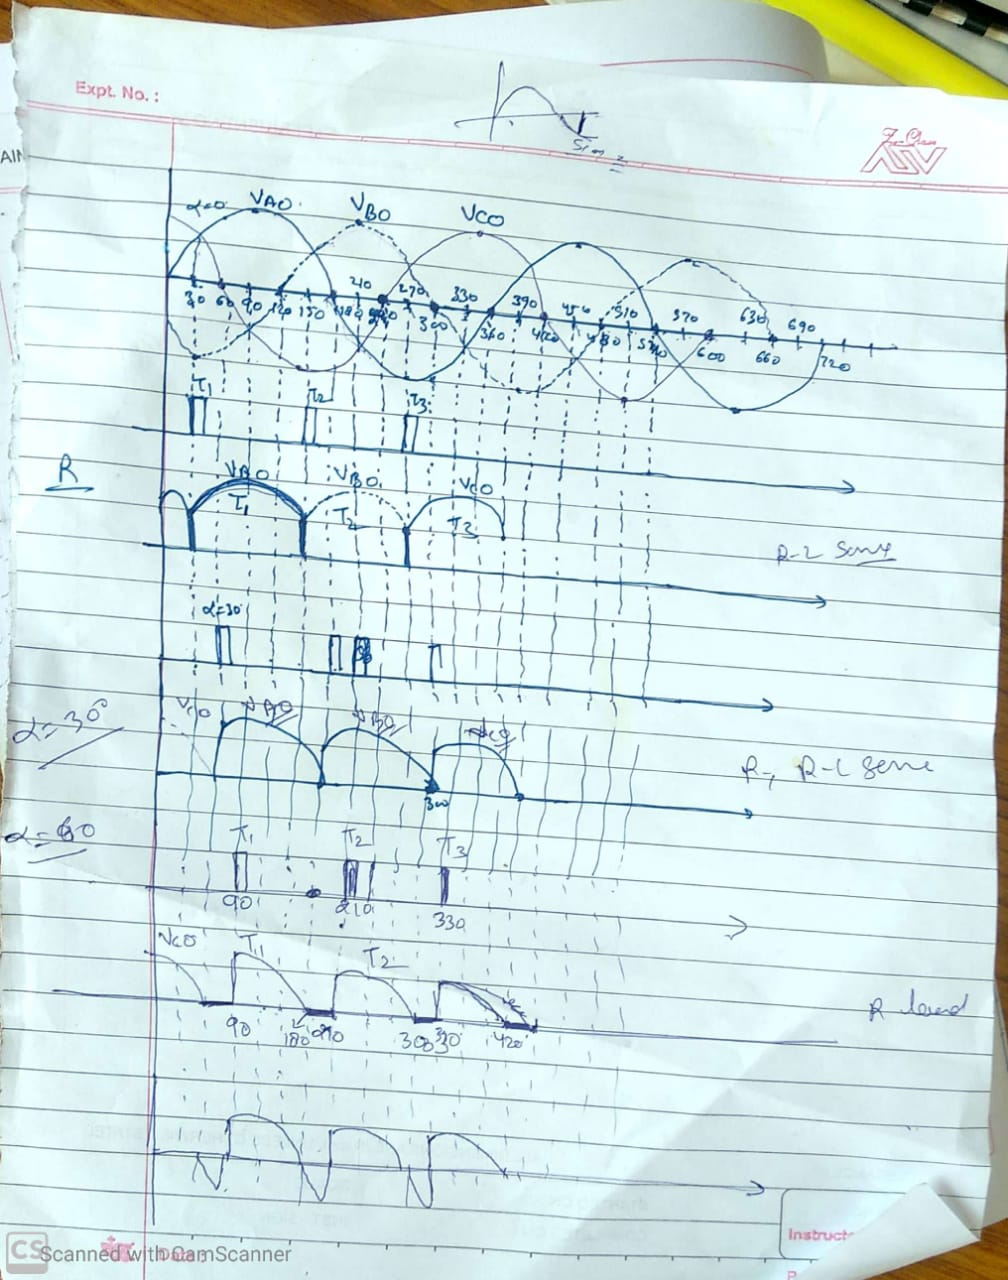 Expt. No. :
AIN
α=0
VAO
VBO
VCO
30 60 90 120 150 180 210 240 270 300 330 360 390 420 450 480 510 540 570 600 630 660 690 720
T1 T2 T3
R
VAO VBO VCO
T1 T2 T3
α=30
α=30°
VCO VAO VBO VCO
300
α=60
T1 T2 T3
90 210 330
VCO T1 T2
R load
90 180 210 300 330 420
Instruct
CS Scanned with CamScanner